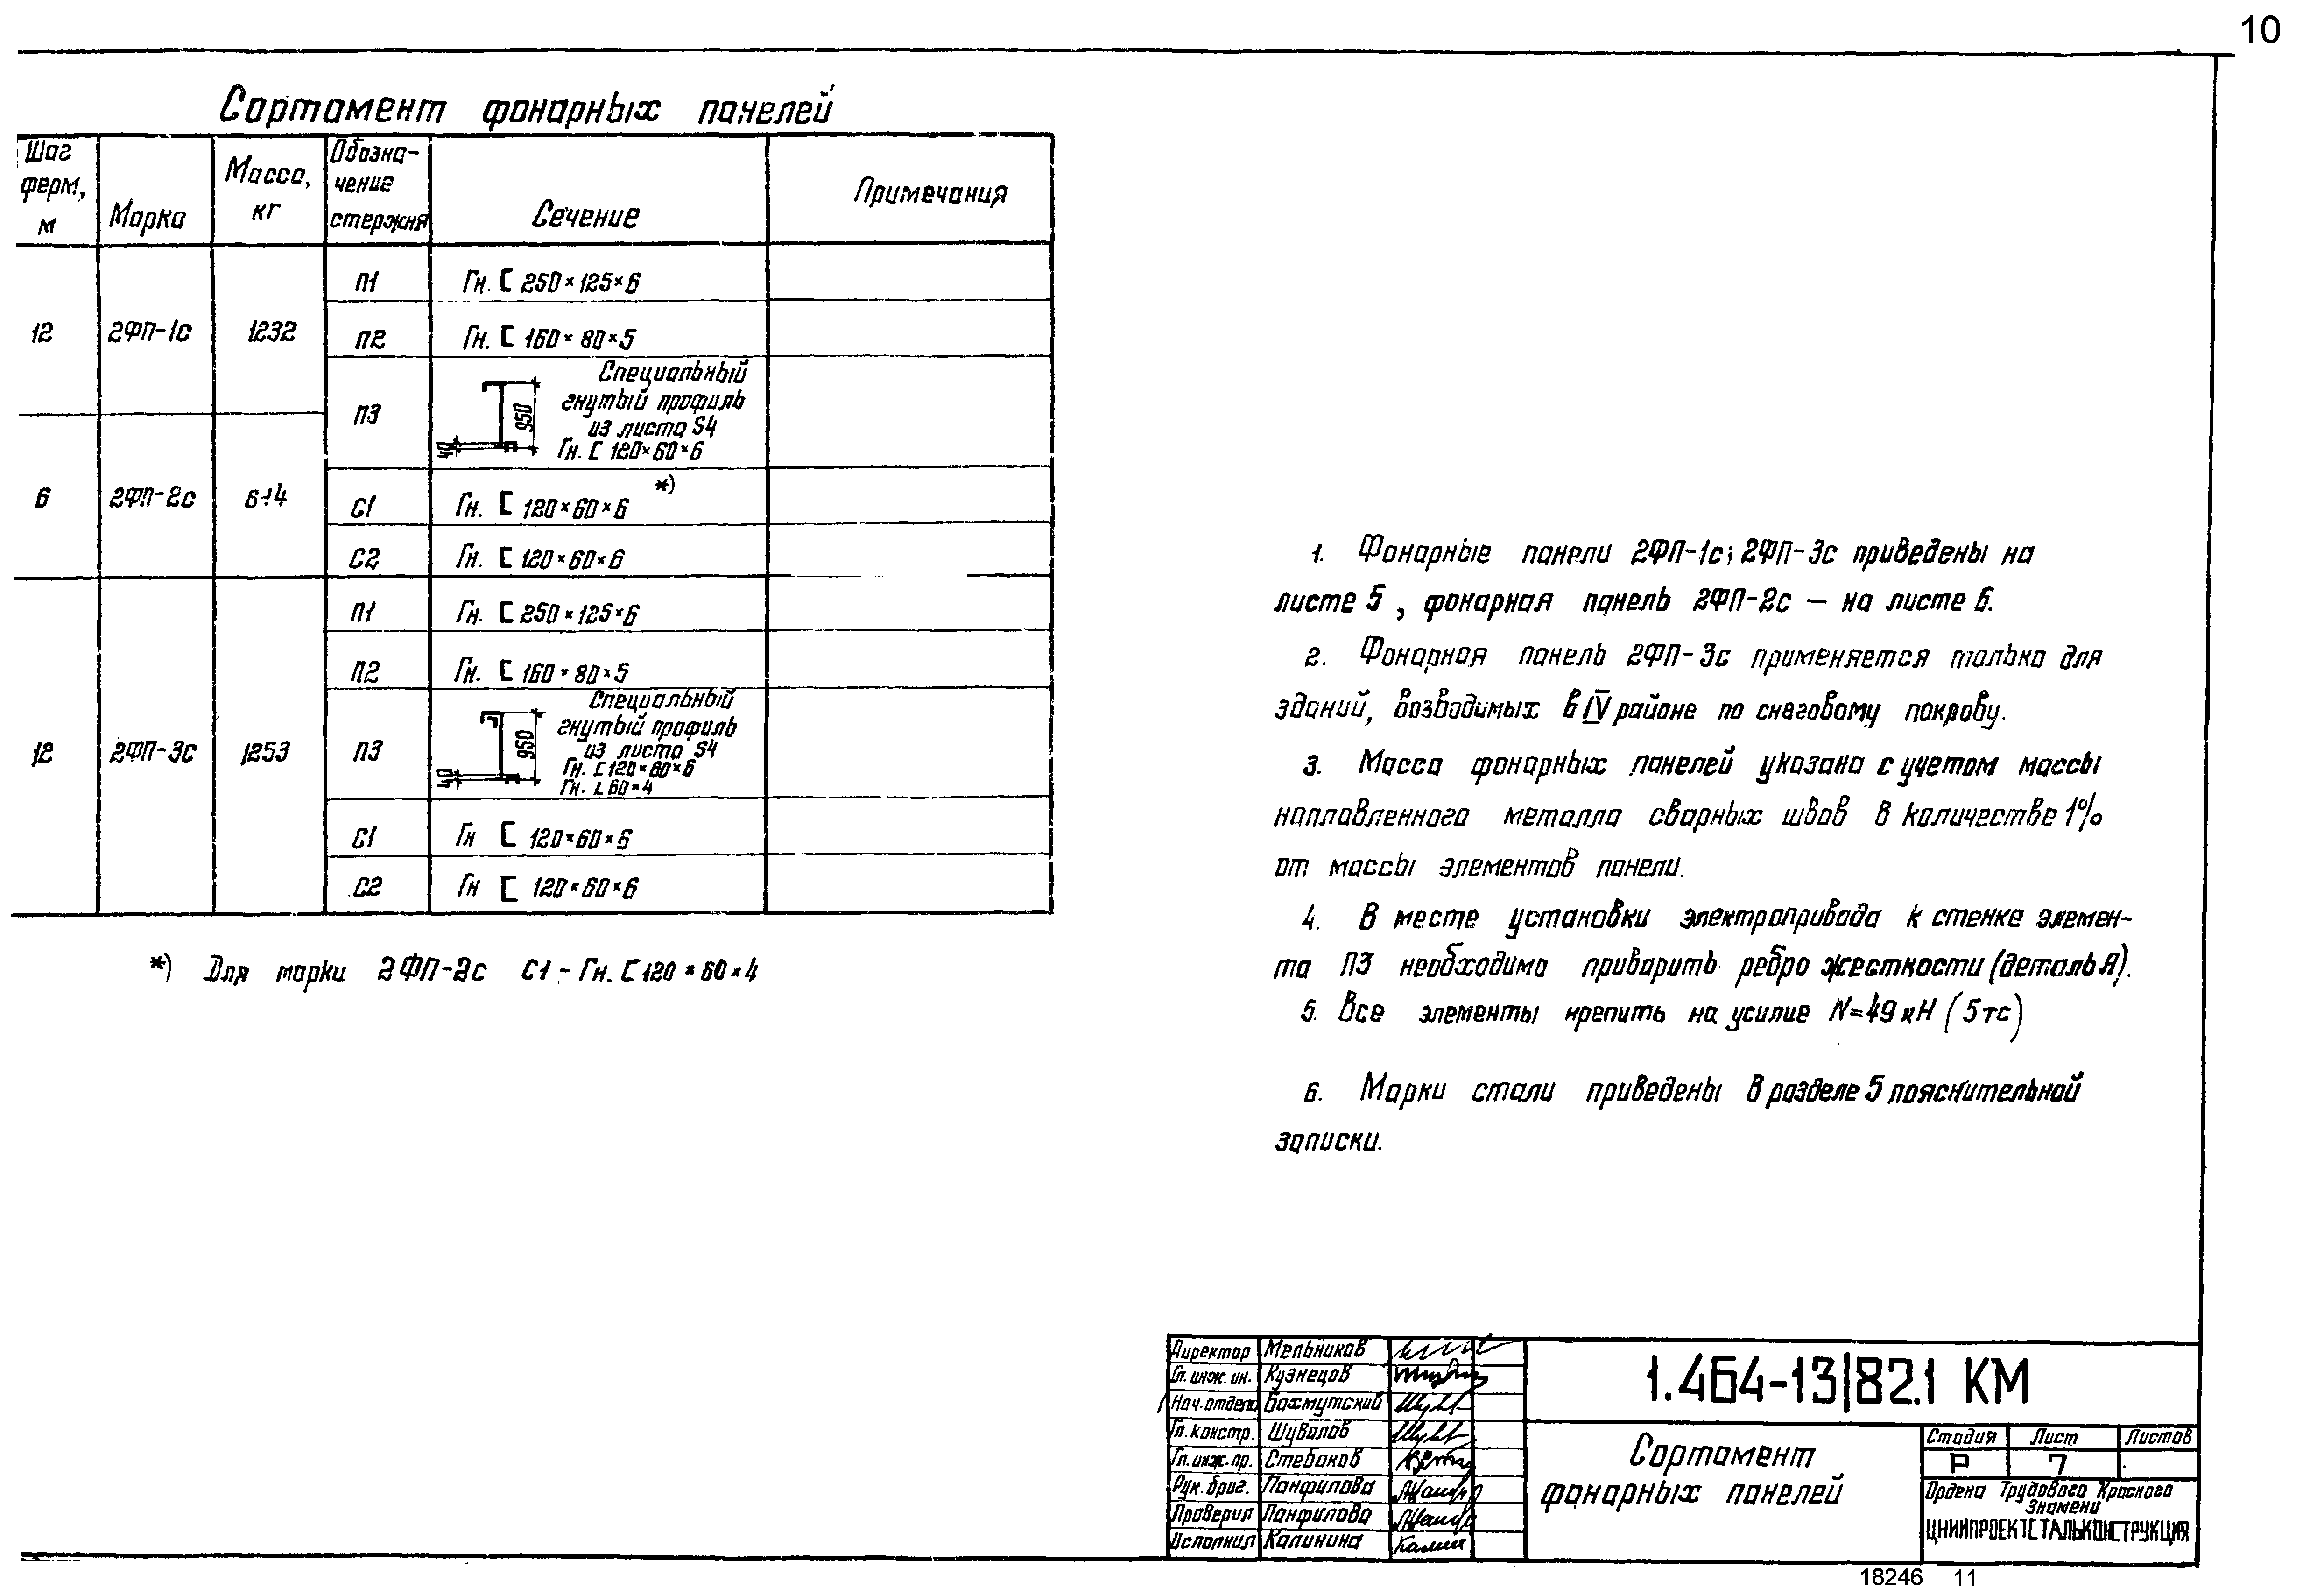 10
Сортамент фонарных панелей
Шаг ферм, м | Марка | Масса, кг | Обозна-чение стержня | Сечение | Примечания
12 | 2ФП-1с | 1232 | П1 | Гн. [ 250×125×6
П2 | Гн. [ 160×80×5
П3 | 950 40 Специальный
гнутый профиль
из листа S4
Гн. [ 120×60×6
6 | 2ФП-2с | С1 | Гн. [ 120×60×6 *)
С2 | Гн. [ 120×60×6
12 | 2ФП-3с | 1253 | П1 | Гн. [ 250×125×6
П2 | Гн. [ 160×80×5
П3 | 950 40 Специальный
гнутый профиль
из листа S4
Гн. [ 120×60×6
Гн. L 60×4
С1 | Гн [ 120×60×6
С2 | Гн [ 120×60×6
*) Для марки 2ФП-2с С1 - Гн. [ 120×60×4
1. Фонарные панели 2ФП-1с; 2ФП-3с приведены на
листе 5, фонарная панель 2ФП-2с – на листе 6.
2. Фонарная панель 2ФП-3с применяется только для
зданий, возводимых в IV районе по снеговому покрову.
3. Масса фонарных панелей указана с учетом массы
наплавленного металла сварных швов в количестве 1%
от массы элементов панели.
4. В месте установки электропривода к стенке элемен-
та П3 необходимо приварить ребро жесткости (деталь Я).
5. Все элементы крепить на усилие N=49кН (5тс)
6. Марки стали приведены в разделе 5 пояснительной
записки.
Директор Мельников
Гл. инж. ин. Кузнецов
Нач. отдела Бахмутский
Гл. констр. Шувалов
Гл. инж. пр.
Рук. бриг. Панфилова
Проверил Панфилова
Исполнил Калинина
1.464-13/82.1 КМ
Сортамент
фонарных панелей
Стадия Лист Листов
Р 7
Ордена Трудового Красного
Знамени
ЦНИИПРОЕКТСТАЛЬКОНСТРУКЦИЯ
18246 11